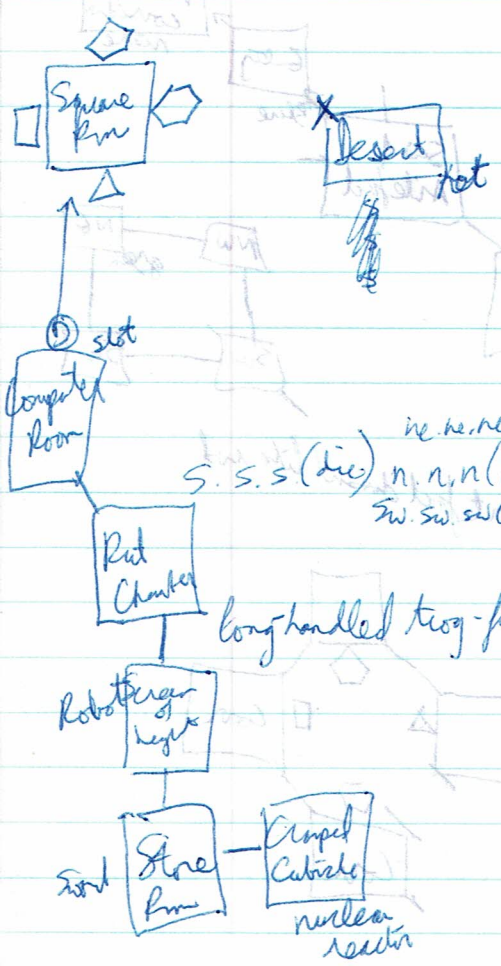 Square
Rm
Desert
hot
D
slot
Computer
Room
ne. ne. ne
S. S. S. (die) n. n. n (
Sw. sw. sw (
Rat
Chamber
long-handled
Robot
Screen
of
Light
Store
Rm
Sword
Cramped
Cubicle
nuclear
reactor